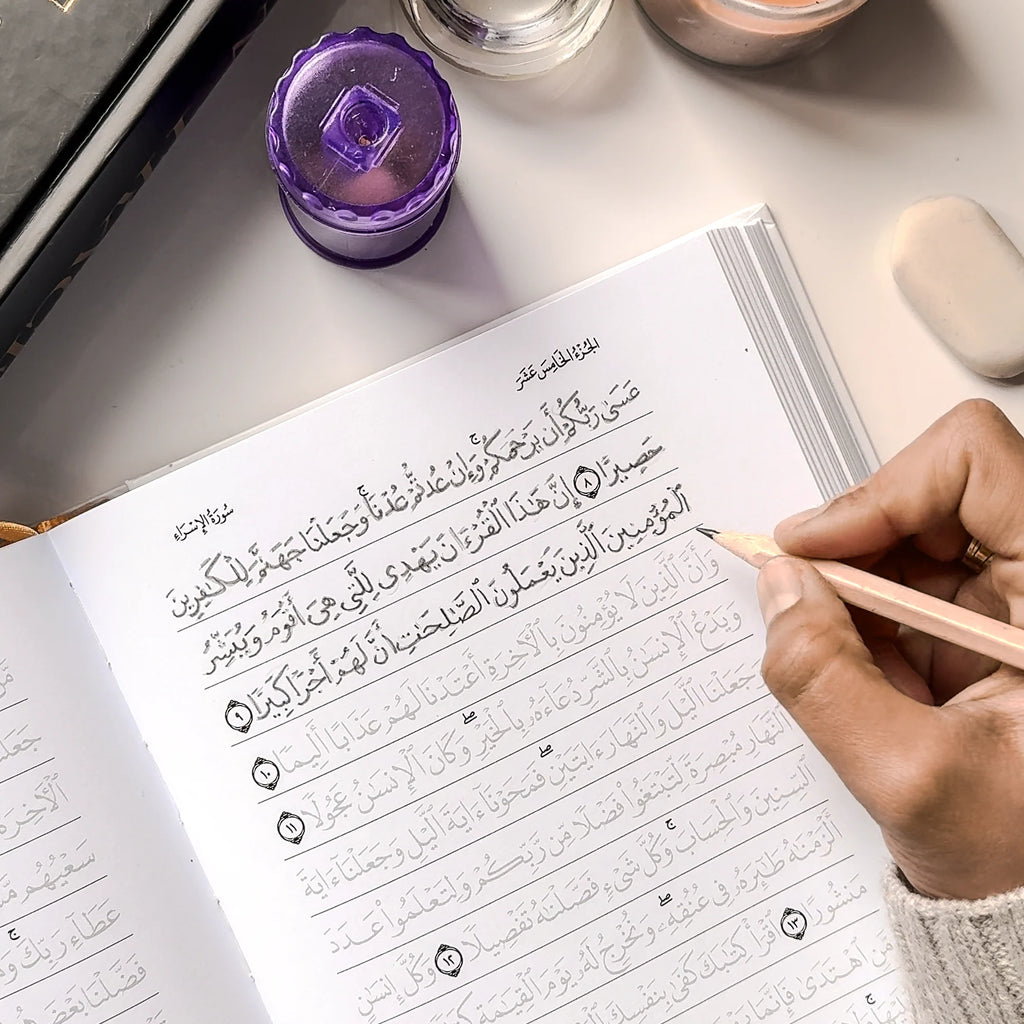 الجزء الخامس عشر
سورة الإسراء
عَسَىٰ رَبُّكُمۡ أَن يَرۡحَمَكُمۡۚ وَإِنۡ عُدتُّمۡ عُدۡنَاۚ وَجَعَلۡنَا جَهَنَّمَ لِلۡكَٰفِرِينَ
حَصِيرًا ٨ إِنَّ هَٰذَا ٱلۡقُرۡءَانَ يَهۡدِي لِلَّتِي هِيَ أَقۡوَمُ وَيُبَشِّرُ
ٱلۡمُؤۡمِنِينَ ٱلَّذِينَ يَعۡمَلُونَ ٱلصَّٰلِحَٰتِ أَنَّ لَهُمۡ أَجۡرٗا كَبِيرٗا ٩
وَأَنَّ ٱلَّذِينَ لَا يُؤۡمِنُونَ بِٱلۡأٓخِرَةِ أَعۡتَدۡنَا لَهُمۡ عَذَابًا أَلِيمٗا ١٠
وَيَدۡعُ ٱلۡإِنسَٰنُ بِٱلشَّرِّ دُعَآءَهُۥ بِٱلۡخَيۡرِۖ وَكَانَ ٱلۡإِنسَٰنُ عَجُولٗا ١١
جَعَلۡنَا ٱلَّيۡلَ وَٱلنَّهَارَ ءَايَتَيۡنِۖ فَمَحَوۡنَآ ءَايَةَ ٱلَّيۡلِ وَجَعَلۡنَآ ءَايَةَ
ٱلنَّهَارِ مُبۡصِرَةٗ لِّتَبۡتَغُواْ فَضۡلٗا مِّن رَّبِّكُمۡ وَلِتَعۡلَمُواْ عَدَدَ
ٱلسِّنِينَ وَٱلۡحِسَابَۚ وَكُلَّ شَيۡءٖ فَصَّلۡنَٰهُ تَفۡصِيلٗا ١٢ وَكُلَّ إِنسَٰنٍ
أَلۡزَمۡنَٰهُ طَٰٓئِرَهُۥ فِي عُنُقِهِۦۖ وَنُخۡرِجُ لَهُۥ يَوۡمَ ٱلۡقِيَٰمَةِ
مَنشُورًا ١٣ ٱقۡرَأۡ كِتَٰبَكَ كَفَىٰ بِنَفۡسِكَ
مَّنِ ٱهۡتَدَىٰ فَإِنَّمَا
جَعَلۡنَا
ٱلۡأٓخِرَةَ
سَعۡيُهُم
عَطَآءِ رَبِّكَۚ
فَضَّلۡنَا بَعۡضَهُمۡ